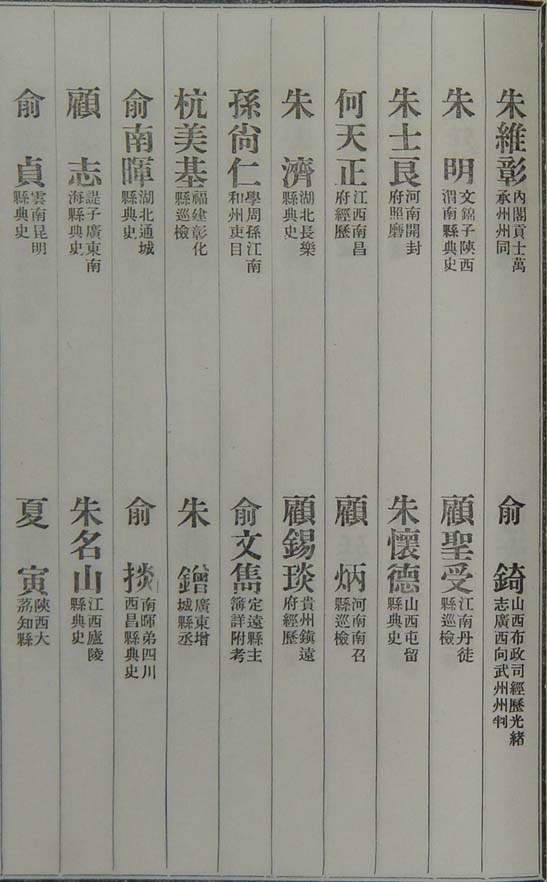 朱維彰 內閣貢士萬承州州同
俞錡 山西布政司經歷光緒志廣西向武州州判
朱明 文錦子陝西渭南縣典史
顧聖受 江南丹徒縣巡檢
朱士艮 河南開封府照磨
朱懷德 山西屯留縣典史
何天正 江西南昌府經歷
顧炳 河南南召縣巡檢
朱濟 湖北長樂縣典史
顧錫琰 貴州鎮遠府經歷
孫尙仁 學周孫江南和州吏目
俞文雋 定遠縣主簿詳附考
杭美基 福建彰化縣巡檢
朱鎓 廣東增城縣丞
俞南暉 湖北通城縣典史
俞掞 南暉弟四川西昌縣典史
顧志 諟子廣東南海縣典史
朱名山 江西廬陵縣典史
俞貞 雲南昆明縣典史
夏寅 陝西大荔知縣